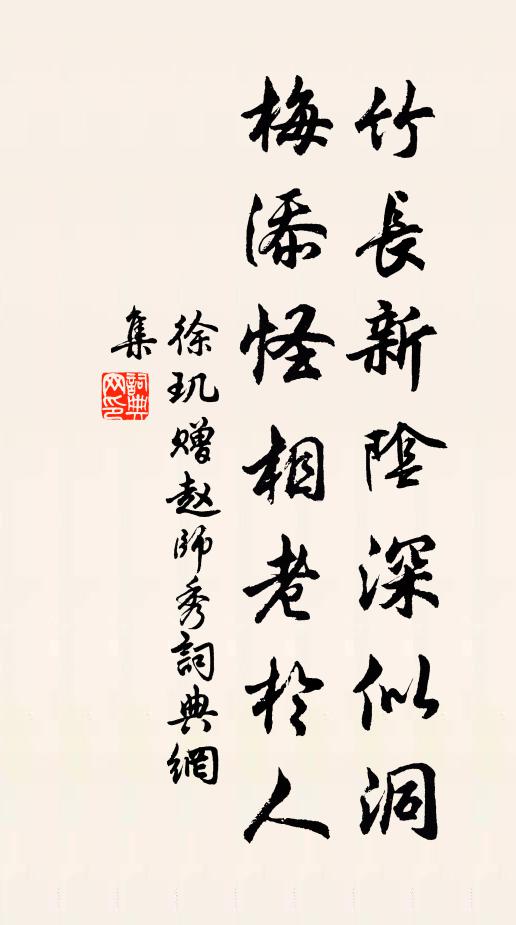 竹長新陰深似洞
梅添怪相老於人
徐玑赠赵師秀詞典網
集
詞典
网印